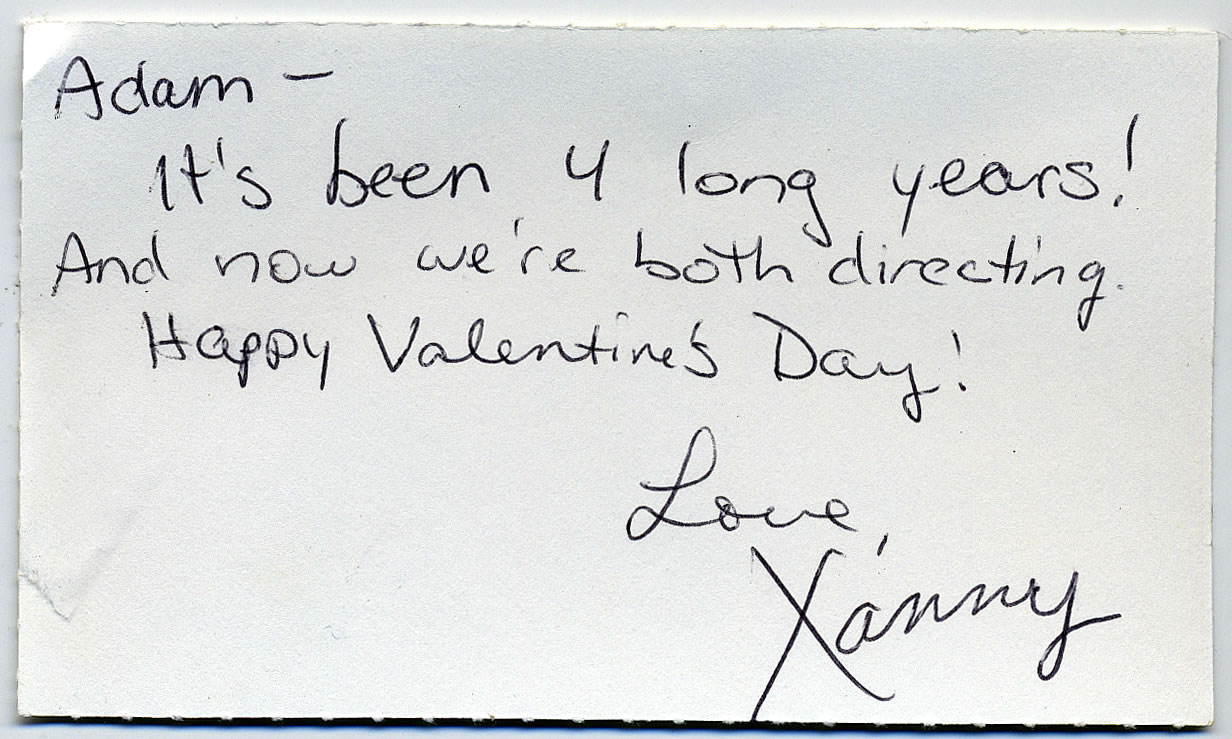 Adam –
It's been 4 long years!
And now we're both directing.
Happy Valentine's Day!
Love,
Xanny